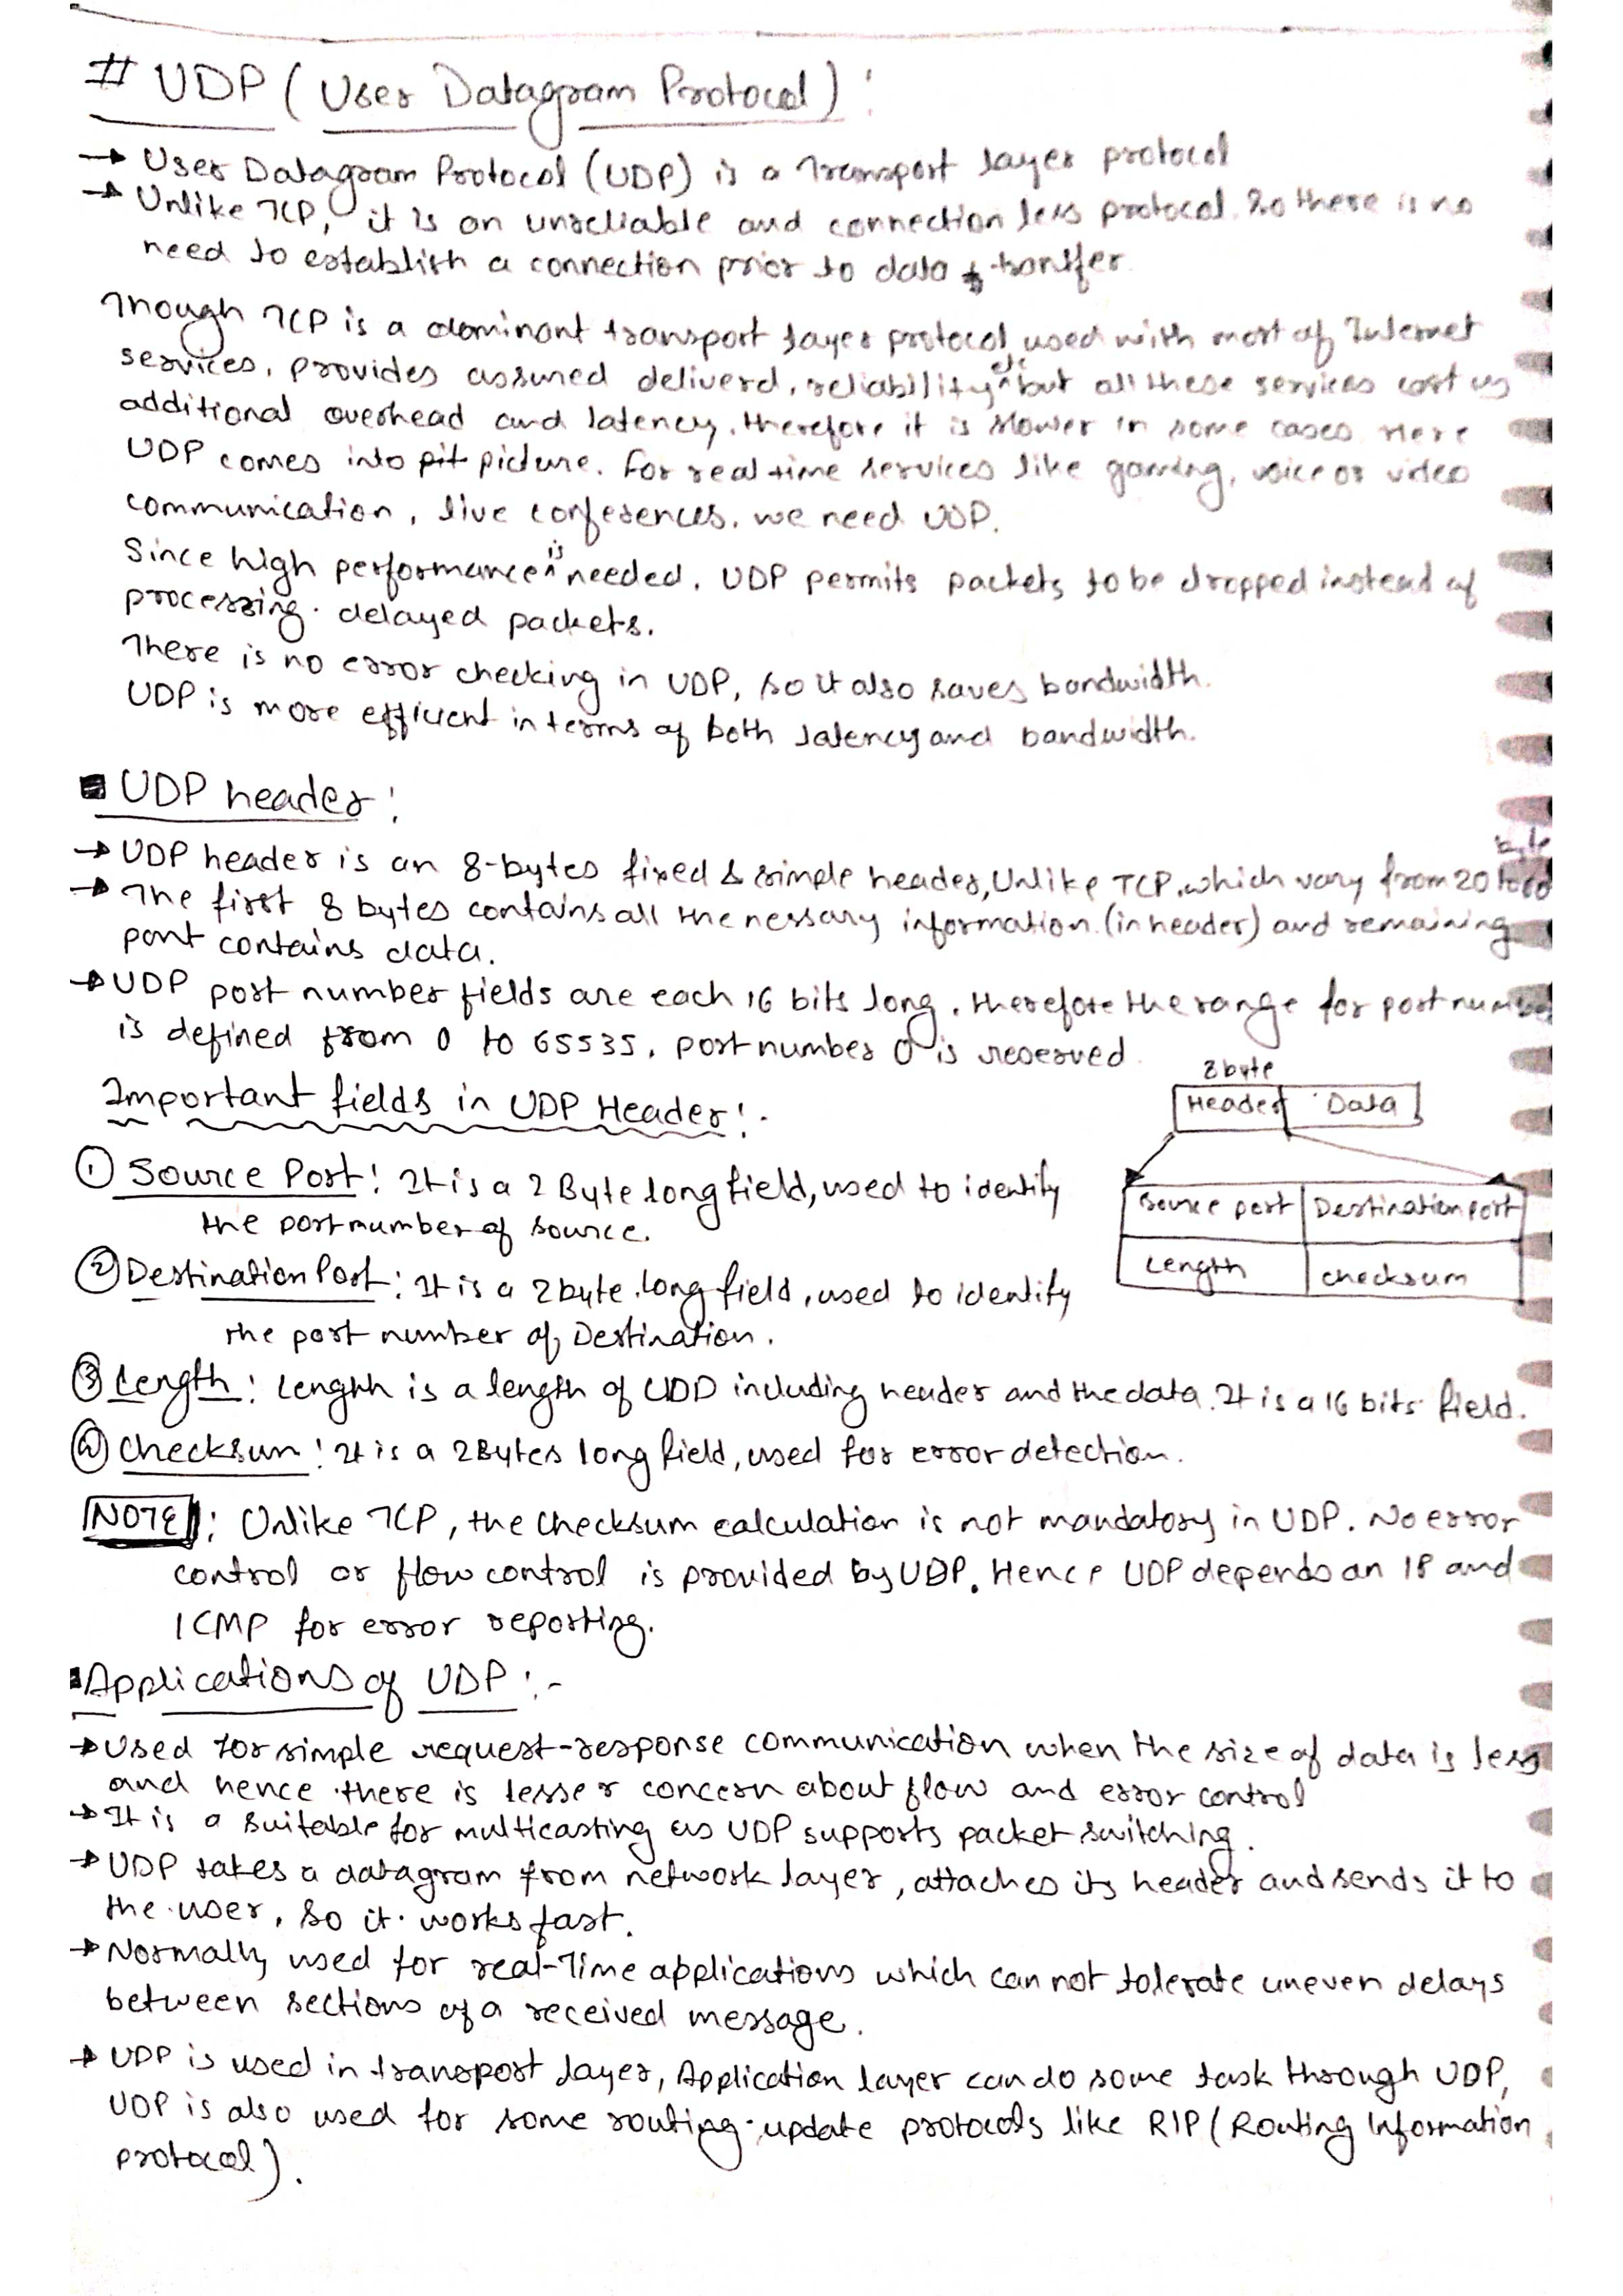 # UDP ( User Datagram Protocol ) :
→ User Datagram Protocol (UDP) is a Transport layer protocol
→ Unlike TCP, it is an unreliable and connection less protocol. So there is no
need to establish a connection prior to data transfer.
Though TCP is a dominant transport layer protocol used with most of Internet
services, provides assured deliverd, reliability etc but all these services cost us
additional overhead and latency, therefore it is slower in some cases. Here
UDP comes into picture. For real time services like gaming, voice or video
communication, live conferences, we need UDP.
Since high performance is needed, UDP permits packets to be dropped instead of
processing delayed packets.
There is no error checking in UDP, so it also saves bandwidth.
UDP is more efficient in terms of both latency and bandwidth.
UDP header :
→ UDP header is an 8-bytes fixed & simple header, Unlike TCP, which vary from 20 to 60 byte
→ The first 8 bytes contains all the nessary information (in header) and remaining
part contains data.
→ UDP port number fields are each 16 bits long, therefore the range for port number
is defined from 0 to 65535, port number 0 is reserved.
Important fields in UDP Header :-
8 byte
Header Data
Source port Destination port
Length checksum
① Source Port : It is a 2 Byte long field, used to identify
the port number of source.
② Destination Port : It is a 2 byte long field, used to identify
the port number of Destination.
③ Length : Length is a length of UDP including header and the data. It is a 16 bits field.
④ Checksum : It is a 2 Bytes long field, used for error detection.
NOTE : Unlike TCP, the checksum calculation is not mandatory in UDP. No error
control or flow control is provided by UDP. Hence UDP depends on IP and
ICMP for error reporting.
Applications of UDP :-
→ Used for simple request-response communication when the size of data is less
and hence there is lesser concern about flow and error control
→ It is a suitable for multicasting as UDP supports packet switching.
→ UDP takes a datagram from network layer, attaches its header and sends it to
the user, so it works fast.
→ Normally used for real-Time applications which can not tolerate uneven delays
between sections of a received message.
→ UDP is used in transport layer, Application layer can do some task through UDP,
UDP is also used for some routing update protocols like RIP ( Routing Information
protocol ).